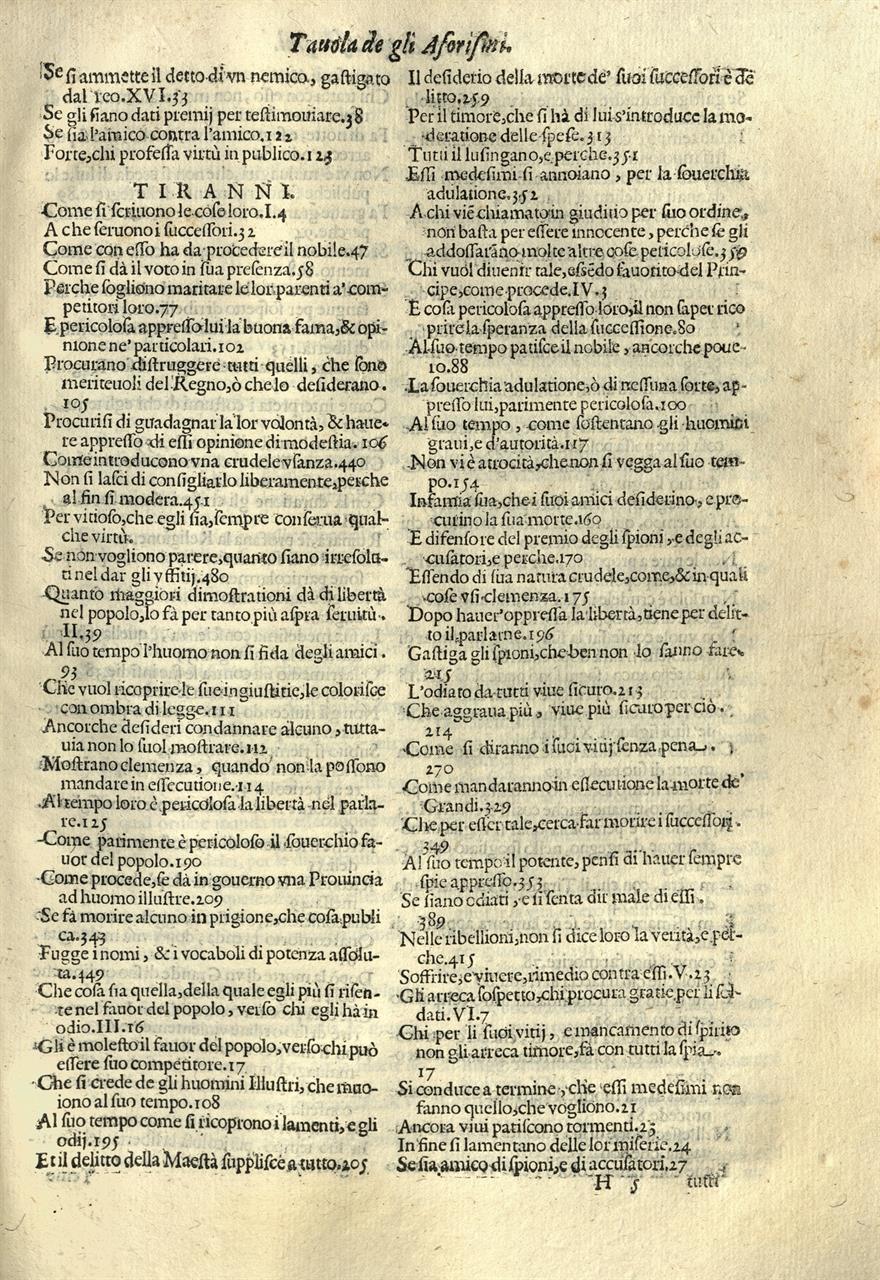 Tauola de gli Aforismi.
Se si ammette il detto di vn nemico, gastigato
dal reo.XVI.33
Se gli siano dati premij per testimoniare.38
Se sia l'amico contra l'amico.122
Forte,chi professa virtù in publico.123
TIRANNI.
Come si scriuono le cose loro.I.4
A che seruono i successori.32
Come con esso ha da procedere il nobile.47
Come si dà il voto in sua presenza.58
Perche sogliono maritare le lor parenti a' com-
petitori loro.77
E pericolosa appresso lui la buona fama,& opi-
nione ne' particolari.102
Procurano distruggere tutti quelli, che sono
meriteuoli del Regno,ò che lo desiderano.
105
Procurisi di guadagnar la lor volontà, & haue-
re appresso di essi opinione di modestia. 106
Come introducono vna crudele vsanza.440
Non si lasci di consigliarlo liberamente,perche
al fin si modera.451
Per vitioso,che egli sia,sempre conserua qual-
che virtù.
Se non vogliono parere,quanto siano irresolu-
ti nel dar gli vffitij.480
Quanto maggiori dimostrationi dà di libertà
nel popolo,lo fà per tanto più aspra seruitù.
II.39
Al suo tempo l'huomo non si fida degli amici.
93
Che vuol ricoprire le sue ingiustitie,le colorisce
con ombra di legge.111
Ancorche desideri condannare alcuno, tutta-
uia non lo suol mostrare.112
Mostrano clemenza, quando non la possono
mandare in essecutione.114
Al tempo loro è pericolosa la libertà nel parla-
re.125
Come patimente è pericoloso il souerchio fa-
uor del popolo.190
Come procede,se dà in gouerno vna Prouincia
ad huomo illustre.209
Se fà morire alcuno in prigione,che cosa publi
ca.343
Fugge i nomi, & i vocaboli di potenza assolu-
ta.449
Che cosa sia quella,della quale egli più si risen-
te nel fauor del popolo, verso chi egli hà in
odio.III.16
Gli è molesto il fauor del popolo,verso chi può
essere suo competitore.17
Che si crede de gli huomini Illustri, che muo-
iono al suo tempo.108
Al suo tempo come si ricoprono i lamenti, e gli
odij.195
Et il delitto della Maestà supplisce a tutto.205
Il desiderio della morte de' suoi successori è dē
litto.259
Per il timore,che si hà di lui s'introduce la mo-
deratione delle spese.313
Tutti il lusingano,e perche.351
Essi medesimi si annoiano, per la souerchia
adulatione.352
A chi viē chiamato in giuditio per suo ordine,
non basta per essere innocente, perche se gli
addossarāno molte altre cose pericolose.359
Chi vuol diuenir tale,essēdo fauorito del Prin-
cipe,come procede.IV.3
E cosa pericolosa appresso loro,il non saper rico
prire la speranza della successione.80
Al suo tempo patisce il nobile, ancorche poue-
ro.88
La souerchia adulatione,ò di nessuna sorte, ap-
presso lui,parimente pericolosa.100
Al suo tempo, come sostentano gli huomini
graui,e d'autorità.117
Non vi è atrocità,che non si vegga al suo tem-
po.154
Infamia sua,che i suoi amici desiderino, e pro-
curino la sua morte.160
E difensore del premio degli spioni, e degli ac-
cusatori,e perche.170
Essendo di sua natura crudele,come,& in quali
cose vsi clemenza.175
Dopo hauer'oppressa la libertà,tiene per delit-
to il parlarne.196
Gastiga gli spioni,che ben non lo sanno fare.
215
L'odiato da tutti viue sicuro.213
Che aggraua più, viue più sicuro per ciò.
214
Come si diranno i suoi vitij senza pena.
270
Come mandaranno in essecutione la morte de'
Grandi.329
Che per esser tale,cerca far morire i successori.
349
Al suo tempo il potente, pensi di hauer sempre
spie appresso.353
Se siano odiati, e si senta dir male di essi.
389
Nelle ribellioni,non si dice loro la verità,e per-
che.415
Soffrire,e viuere,rimedio contra essi.V.23
Gli arreca sospetto,chi procura gratie per li sol-
dati.VI.7
Chi per li suoi vitij, e mancamento di spirito
non gli arreca timore,fà con tutti la spia.
17
Si conduce a termine, che essi medesimi non
fanno quello,che vogliono.21
Ancora viui patiscono tormenti.23
In fine si lamentano delle lor miserie.24
Se sia amico di spioni,e di accusatori.27
H 5 tutti